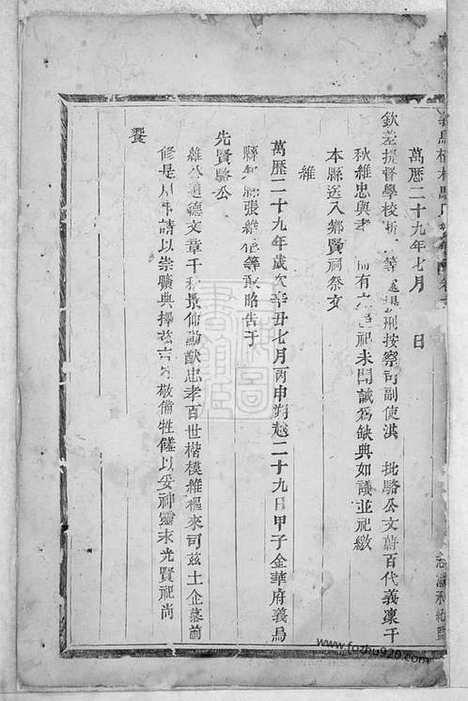 萬歷二十九年七月　日
欽差提督學校　等　刑按察司副使洪　批駱公文蔚百代義凛千
秋維忠與孝　而有　祀未聞誠爲缺典如議並祀繳
本縣送入鄉賢祠祭文
維
萬歷二十九年歲次辛丑七月丙申朔越二十九日甲子金華府義烏
縣知縣張維樞等敢昭告于
先賢駱公
維公道德文章千秋景仰勳猷忠孝百世楷模維樞來司茲土企慕前
修是用申請以崇曠典擇茲吉　敬備牲饈以妥神靈永光賢祀尚
饗
www.fozhu920.com